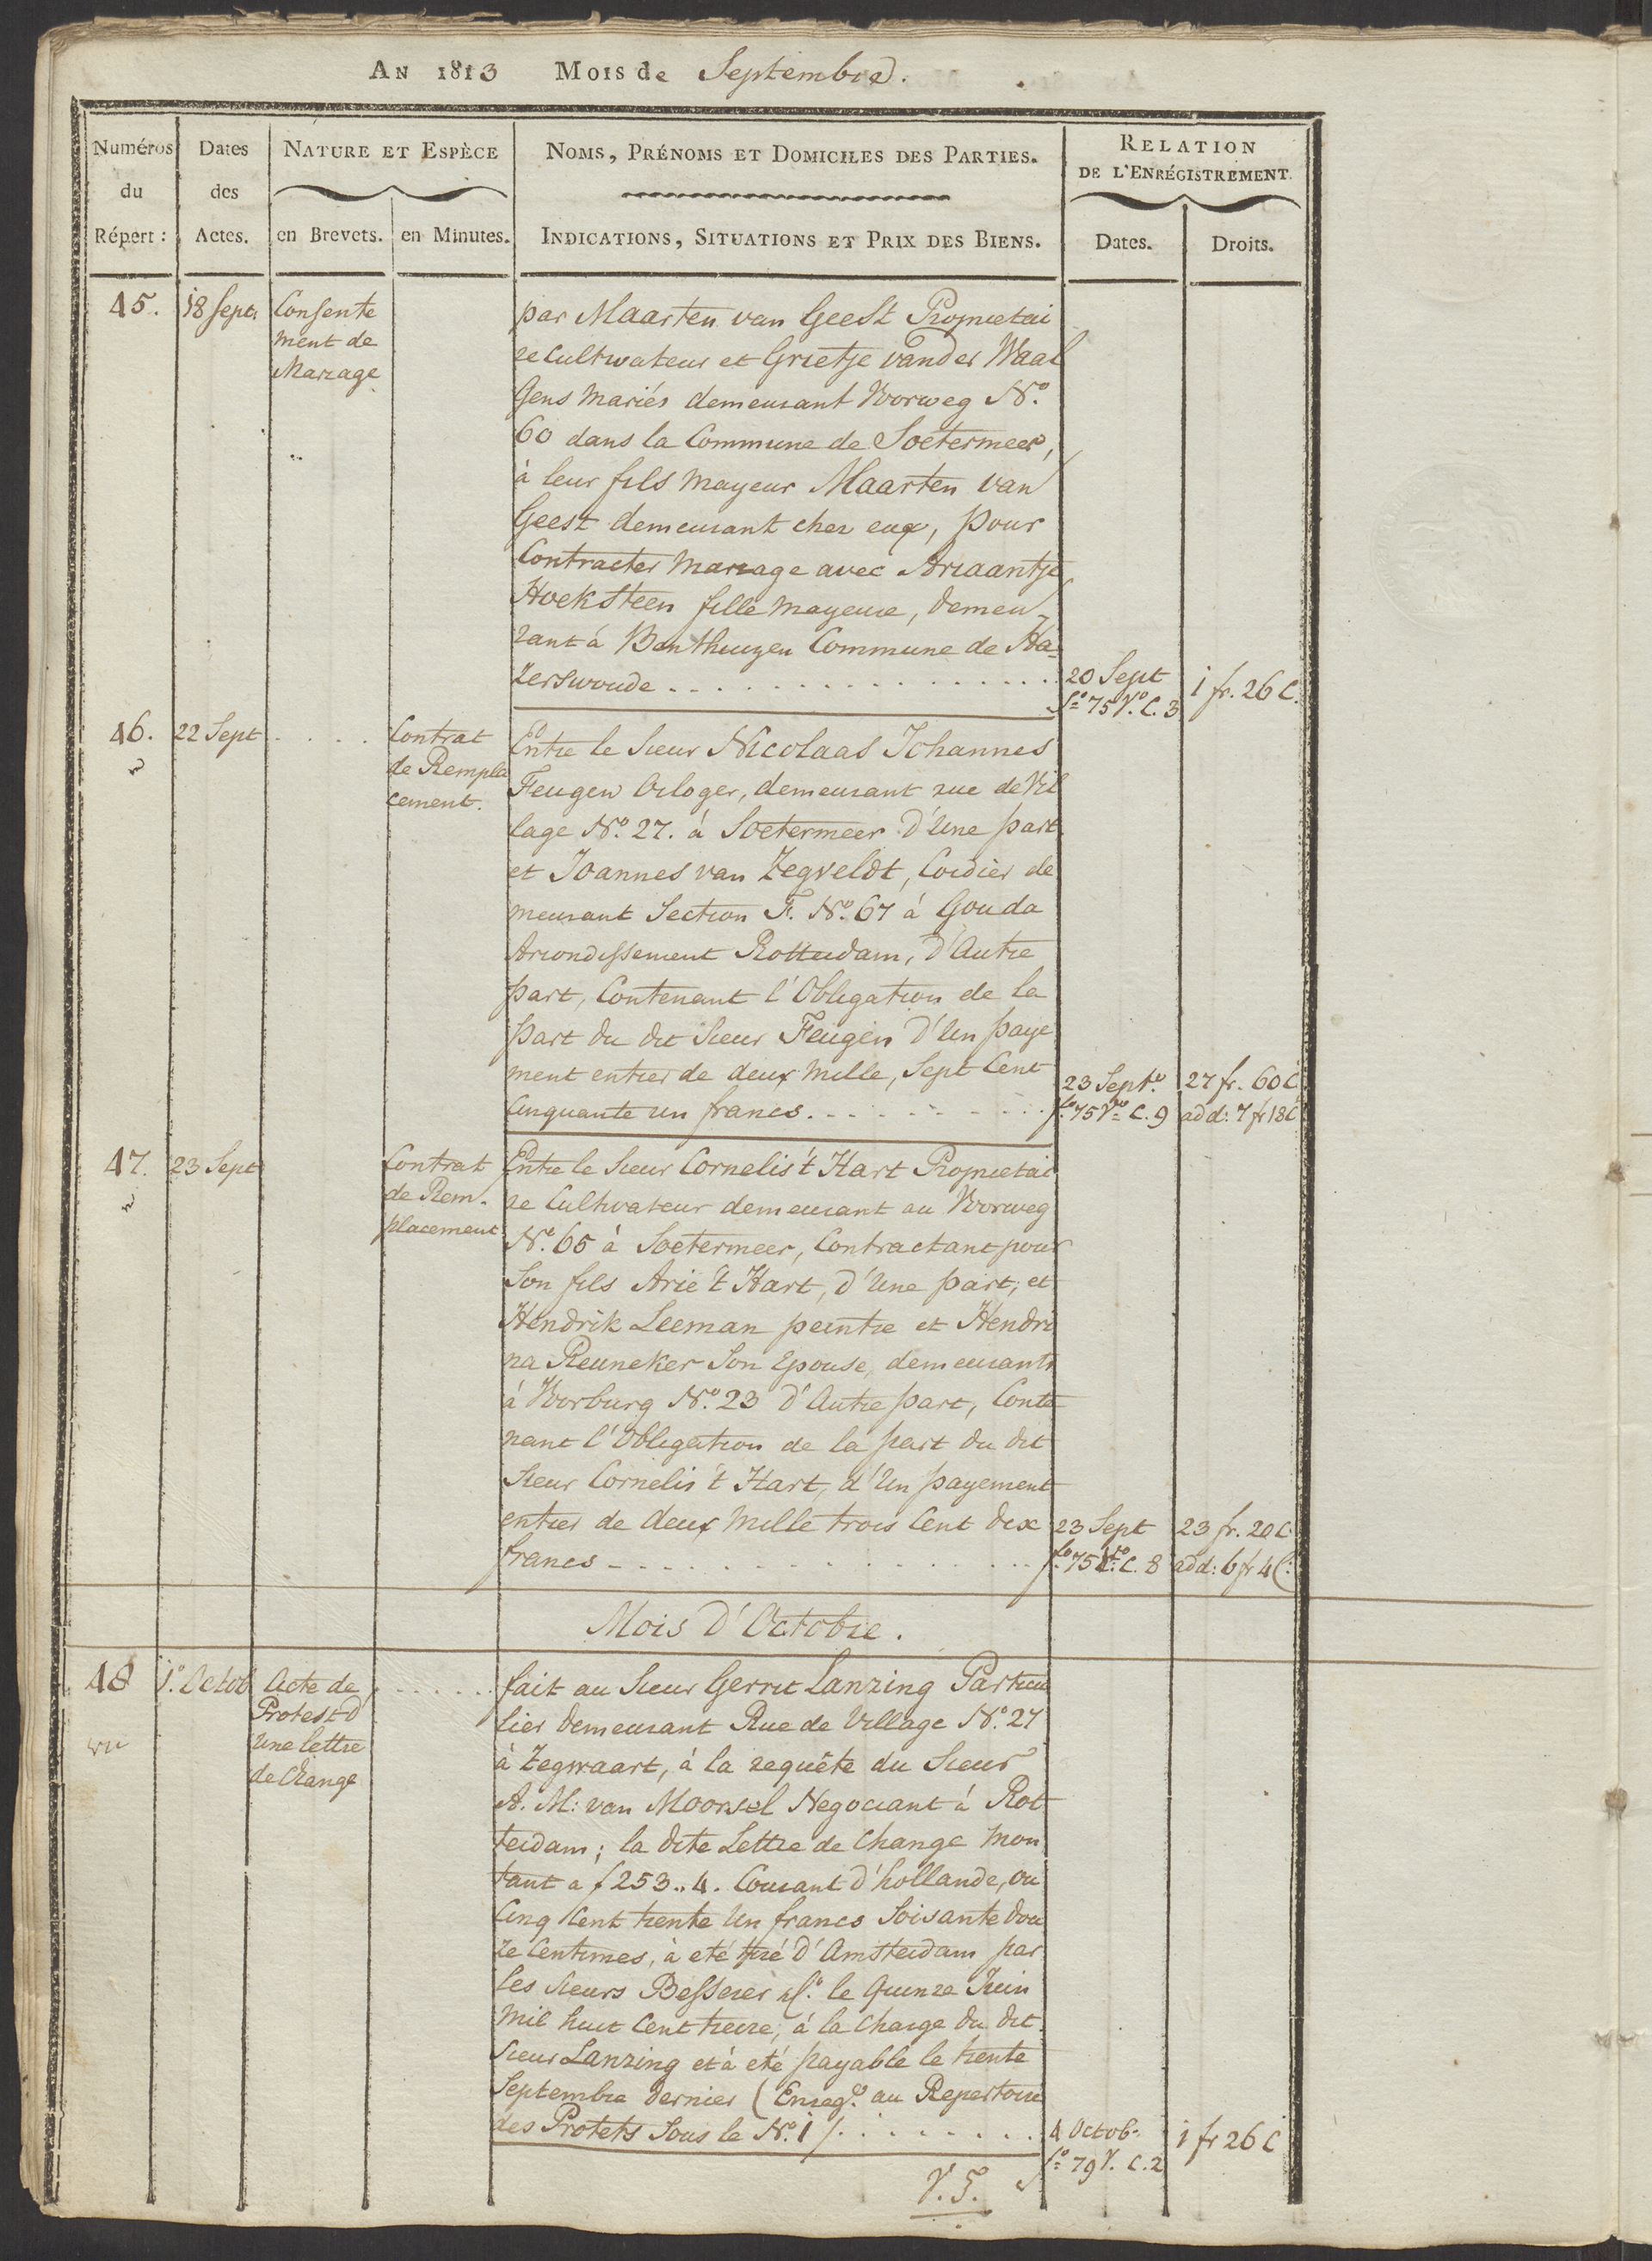 AN 1813 MOIS de Septembre.
Numéros du Répert:
Dates des Actes.
NATURE ET ESPÈCE
en Brevets.
en Minutes.
NOMS, PRÉNOMS ET DOMICILES DES PARTIES.
INDICATIONS, SITUATIONS ET PRIX DES BIENS.
RELATION
DE L'ENRÉGISTREMENT.
Dates.
Droits.
45.
18 Sept.
Consente
ment de
Mariage
par Maarten van Geest Proprietai
re Cultivateur et Grietje vander Waal
Gens mariés demeurant Voorweg No.
60 dans la Commune de Soetermeer,
à leur fils mayeur Maarten van
Geest demeurant chez eux, pour
Contracter mariage avec Ariaantje
Hoeksteen fille mayeure, demeu-
rant à Benthuyzen Commune de Ha-
zerswoude . . . . . . . . . . . . . . . .
20 Sept
fo 75 Vo. C. 3
1 fr. 26 C.
46.
22 Sept . . . .
Contrat
de Rempla
cement.
Entre le Sieur Nicolaas Johannes
Feugen Orloger, demeurant rue de Vil
lage No. 27. á Soetermeer d'Une part
et Joannes van Zegveldt, Cordier de
meurant Section F. No. 67 á Gouda
Arrondissement Rotterdam, d'Autre
part, Contenant l'Obligation de la
part du dit Sieur Feugen d'Un paye
ment entier de deux mille, Sept Cent
Cinquante un francs. . . . . . . . . . .
23 Sept.
fo 75 Vo C. 9
27 fr. 60 C
add: 7 fr 18 C
47.
23 Sept
Contrat
de Rem-
placement
Entre le Sieur Cornelis 't Hart Proprietai
re Cultivateur demeurant au Voorweg
No. 65 à Soetermeer, Contractant pour
Son fils Arie 't Hart, d'Une part, et
Hendrik Leeman peintre et Hendri
na Reuneker Son Epouse, demeurants
à Voorburg No. 23 d'Autre part, Conte
nant l'Obligation de la part du dit
Sieur Cornelis 't Hart, d'Un payement
entier de deux mille trois Cent dix
francs - . . . . . . . . . . . . . . . . .
23 Sept
fo 75 C. 8
23 fr. 20 C
add: 6 fr 4 C:
Mois d'Octobre.
48
1o. Octob
Acte de
Protest d
Une lettre
de Change
fait au Sieur Gerrit Lanzing Particu
lier demeurant Rue de Village No. 27
à Zegwaart, à la requête du Sieur
A. M: van Moorsel Negociant à Rot
terdam; la dite Lettre de Change mon
tant a f 253.. 4. Courant d'hollande, ou
Cinq Cent trente Un francs Soisante dou
ze Centimes, à eté tiré d'Amsterdam par
les Sieurs Besserer le Quinze Juin
mil huit Cent treize, à la Charge du dit
Sieur Lanzing et à eté payable le trente
Septembre dernier (Enreg. au Repertoire
des Protets Sous le No. 1 / . . . . . . . . .
4 Octob.
fo 79 V. C. 2
1 fr 26 C